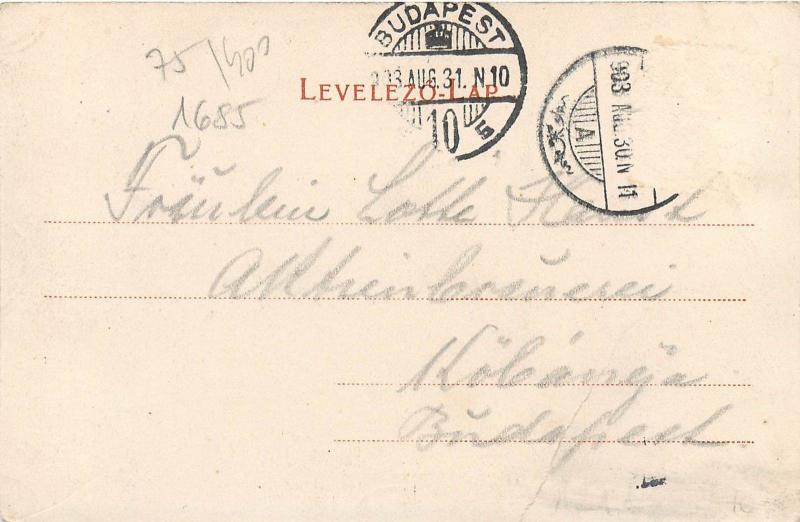 BUDAPEST
903 AUG. 31. N 10
10
5
75/400
LEVELEZŐ-LAP
903 AUG. 30. N 11
A
1685
Fräulein Lotte
Aktienbrauerei
Köbánya
Budapest.